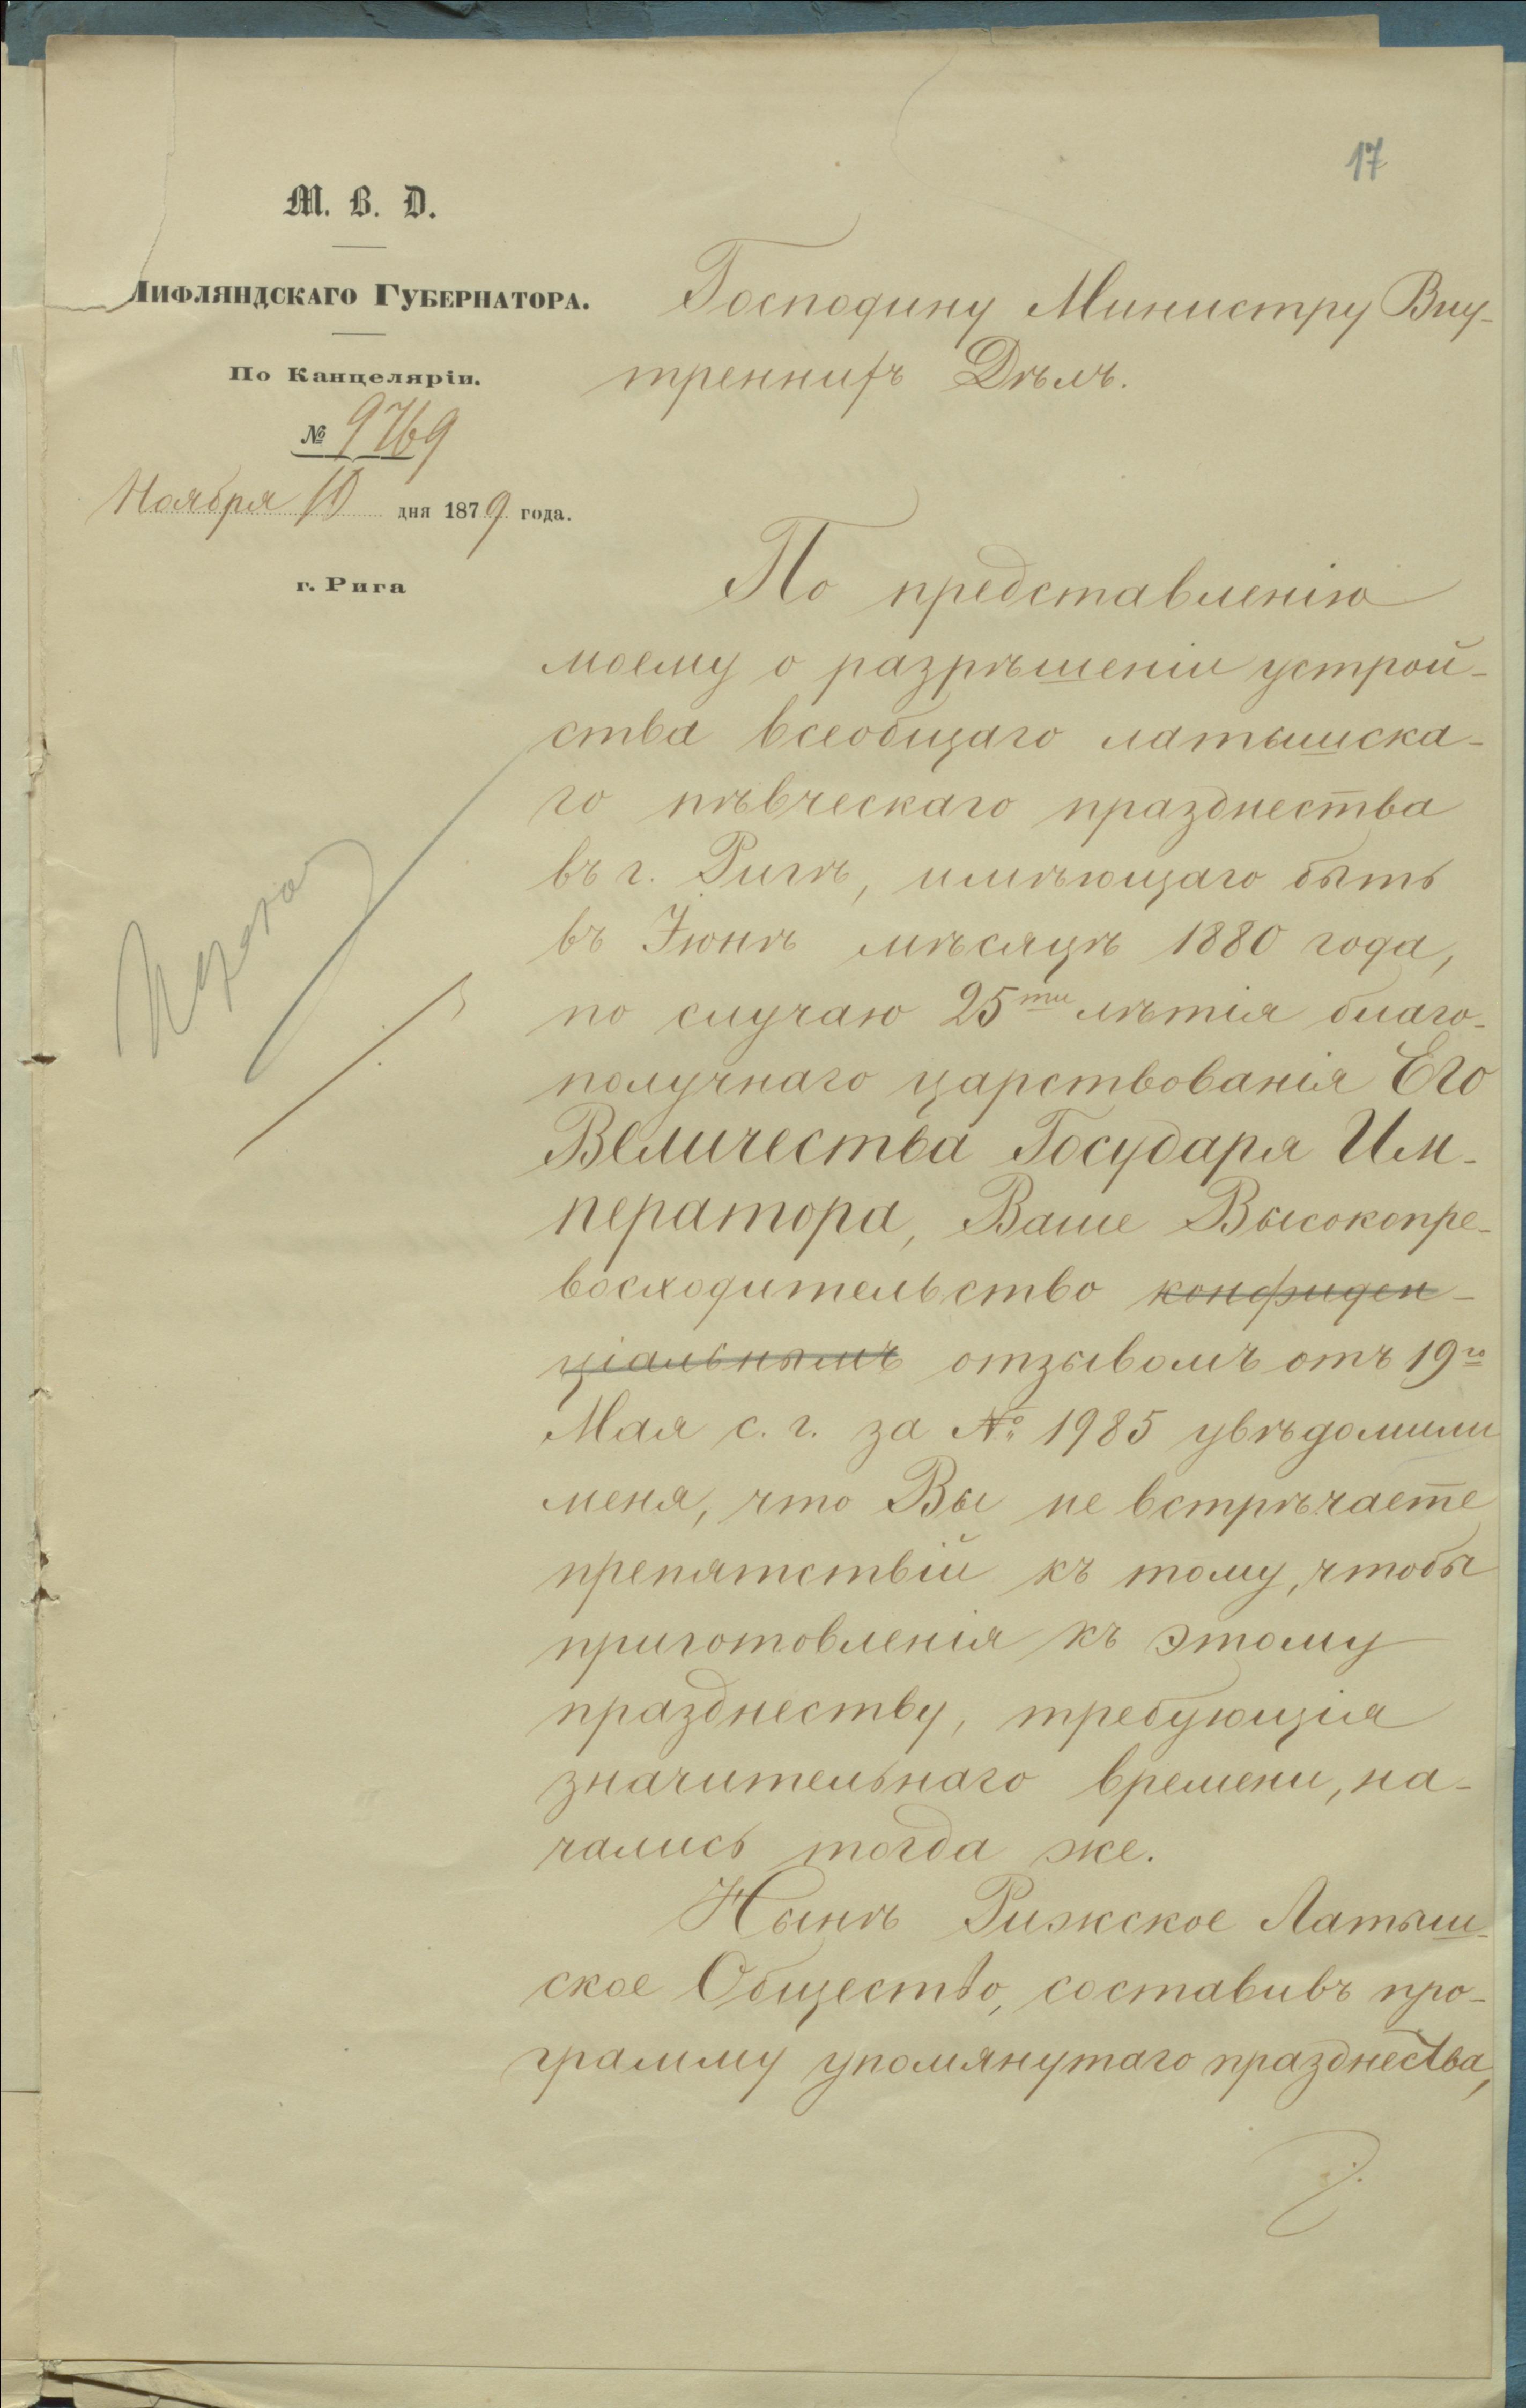 17
М. В. Д.
Лифляндскаго Губернатора.
По Канцеляріи.
№ 9769
Ноября 10 дня 1879 года.
г. Рига
Господину Министру Вну-
треннихъ Дѣлъ.
По представленію
моему о разрѣшеніи устрой-
ства всеобщаго латышска-
го пѣвческаго празднества
въ г. Ригѣ, имѣющаго быть
въ Іюнѣ мѣсяцѣ 1880 года,
по случаю 25ти лѣтія благо-
получнаго царствованія Его
Величества Государя Им-
ператора, Ваше Высокопре-
восходительство конфиден-
ціальнымъ отзывомъ отъ 19го
Мая с. г. за № 1985 увѣдомили
меня, что Вы не встрѣчаете
препятствій къ тому, чтобы
приготовленія къ этому
празднеству, требующія
значительнаго времени, на-
чались тогда же.
Нынѣ Рижское Латыш-
ское Общество, составивъ про-
грамму упомянутаго празднества,